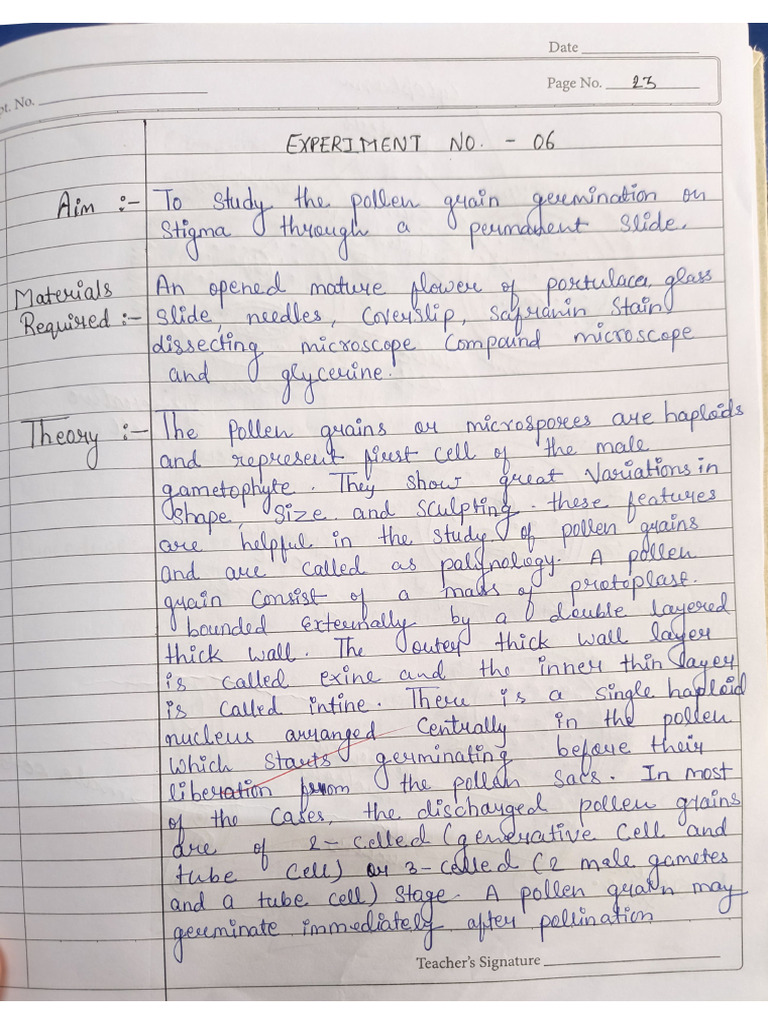 Date
pt. No.
Page No. 23
EXPERIMENT NO. - 06
Aim :- To study the pollen grain germination on
stigma through a permanent slide.
Materials An opened mature flower of portulaca, glass
Required :- slide, needles, coverslip, safranin stain
dissecting microscope compound microscope
and glycerine.
Theory :- The pollen grains or microspores are haploids
and represent first cell of the male
gametophyte. They show great variations in
shape, size and sculpting. these features
are helpful in the study of pollen grains
and are called as palynology. A pollen
grain consist of a mass of protoplast.
bounded externally by a double layered
thick wall. The outer thick wall layer
is called exine and the inner thin layer
is called intine. There is a single haploid
nucleus arranged centrally in the pollen
which starts germinating before their
liberation from the pollen sacs. In most
of the cases, the discharged pollen grains
are of 2-celled (generative cell and
tube cell) or 3-celled (2 male gametes
and a tube cell) stage. A pollen grain may
germinate immediately after pollination
Teacher's Signature